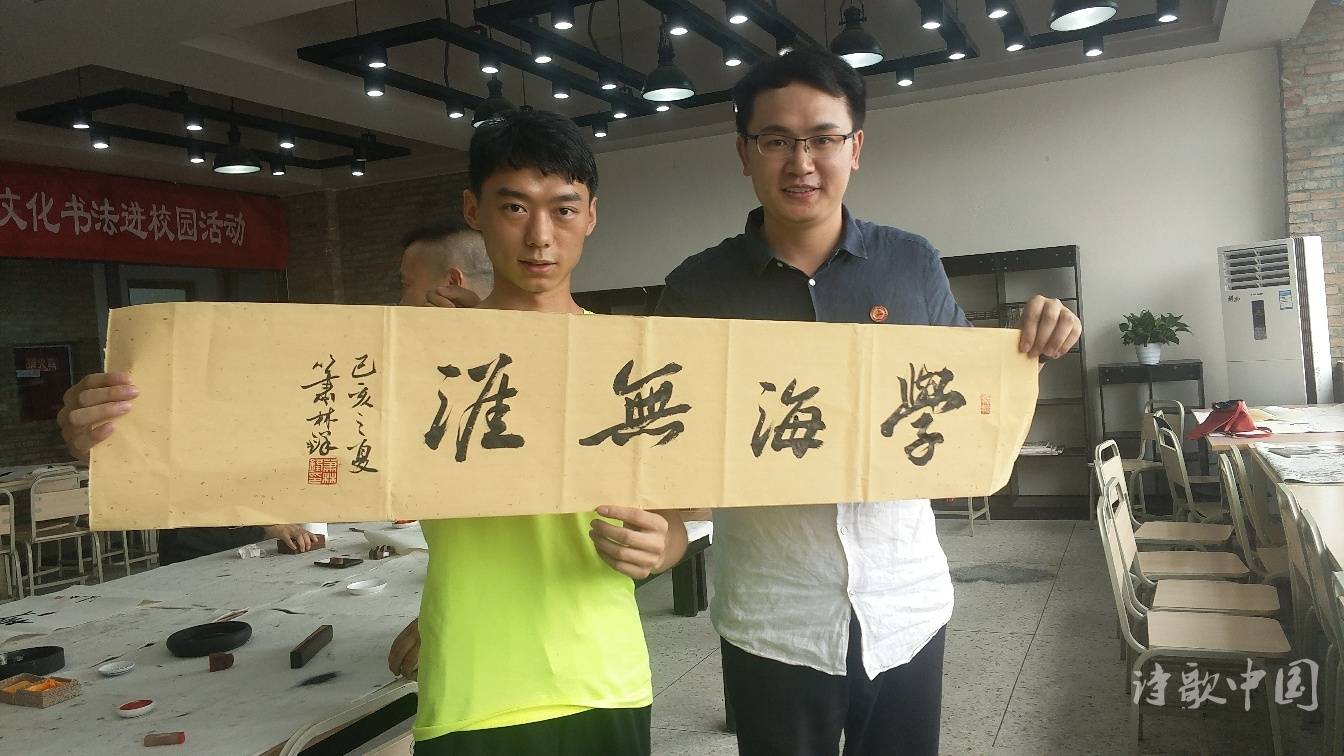 文化书法进校园活动
學海無涯
己亥之夏
蕭林祥
诗歌中国